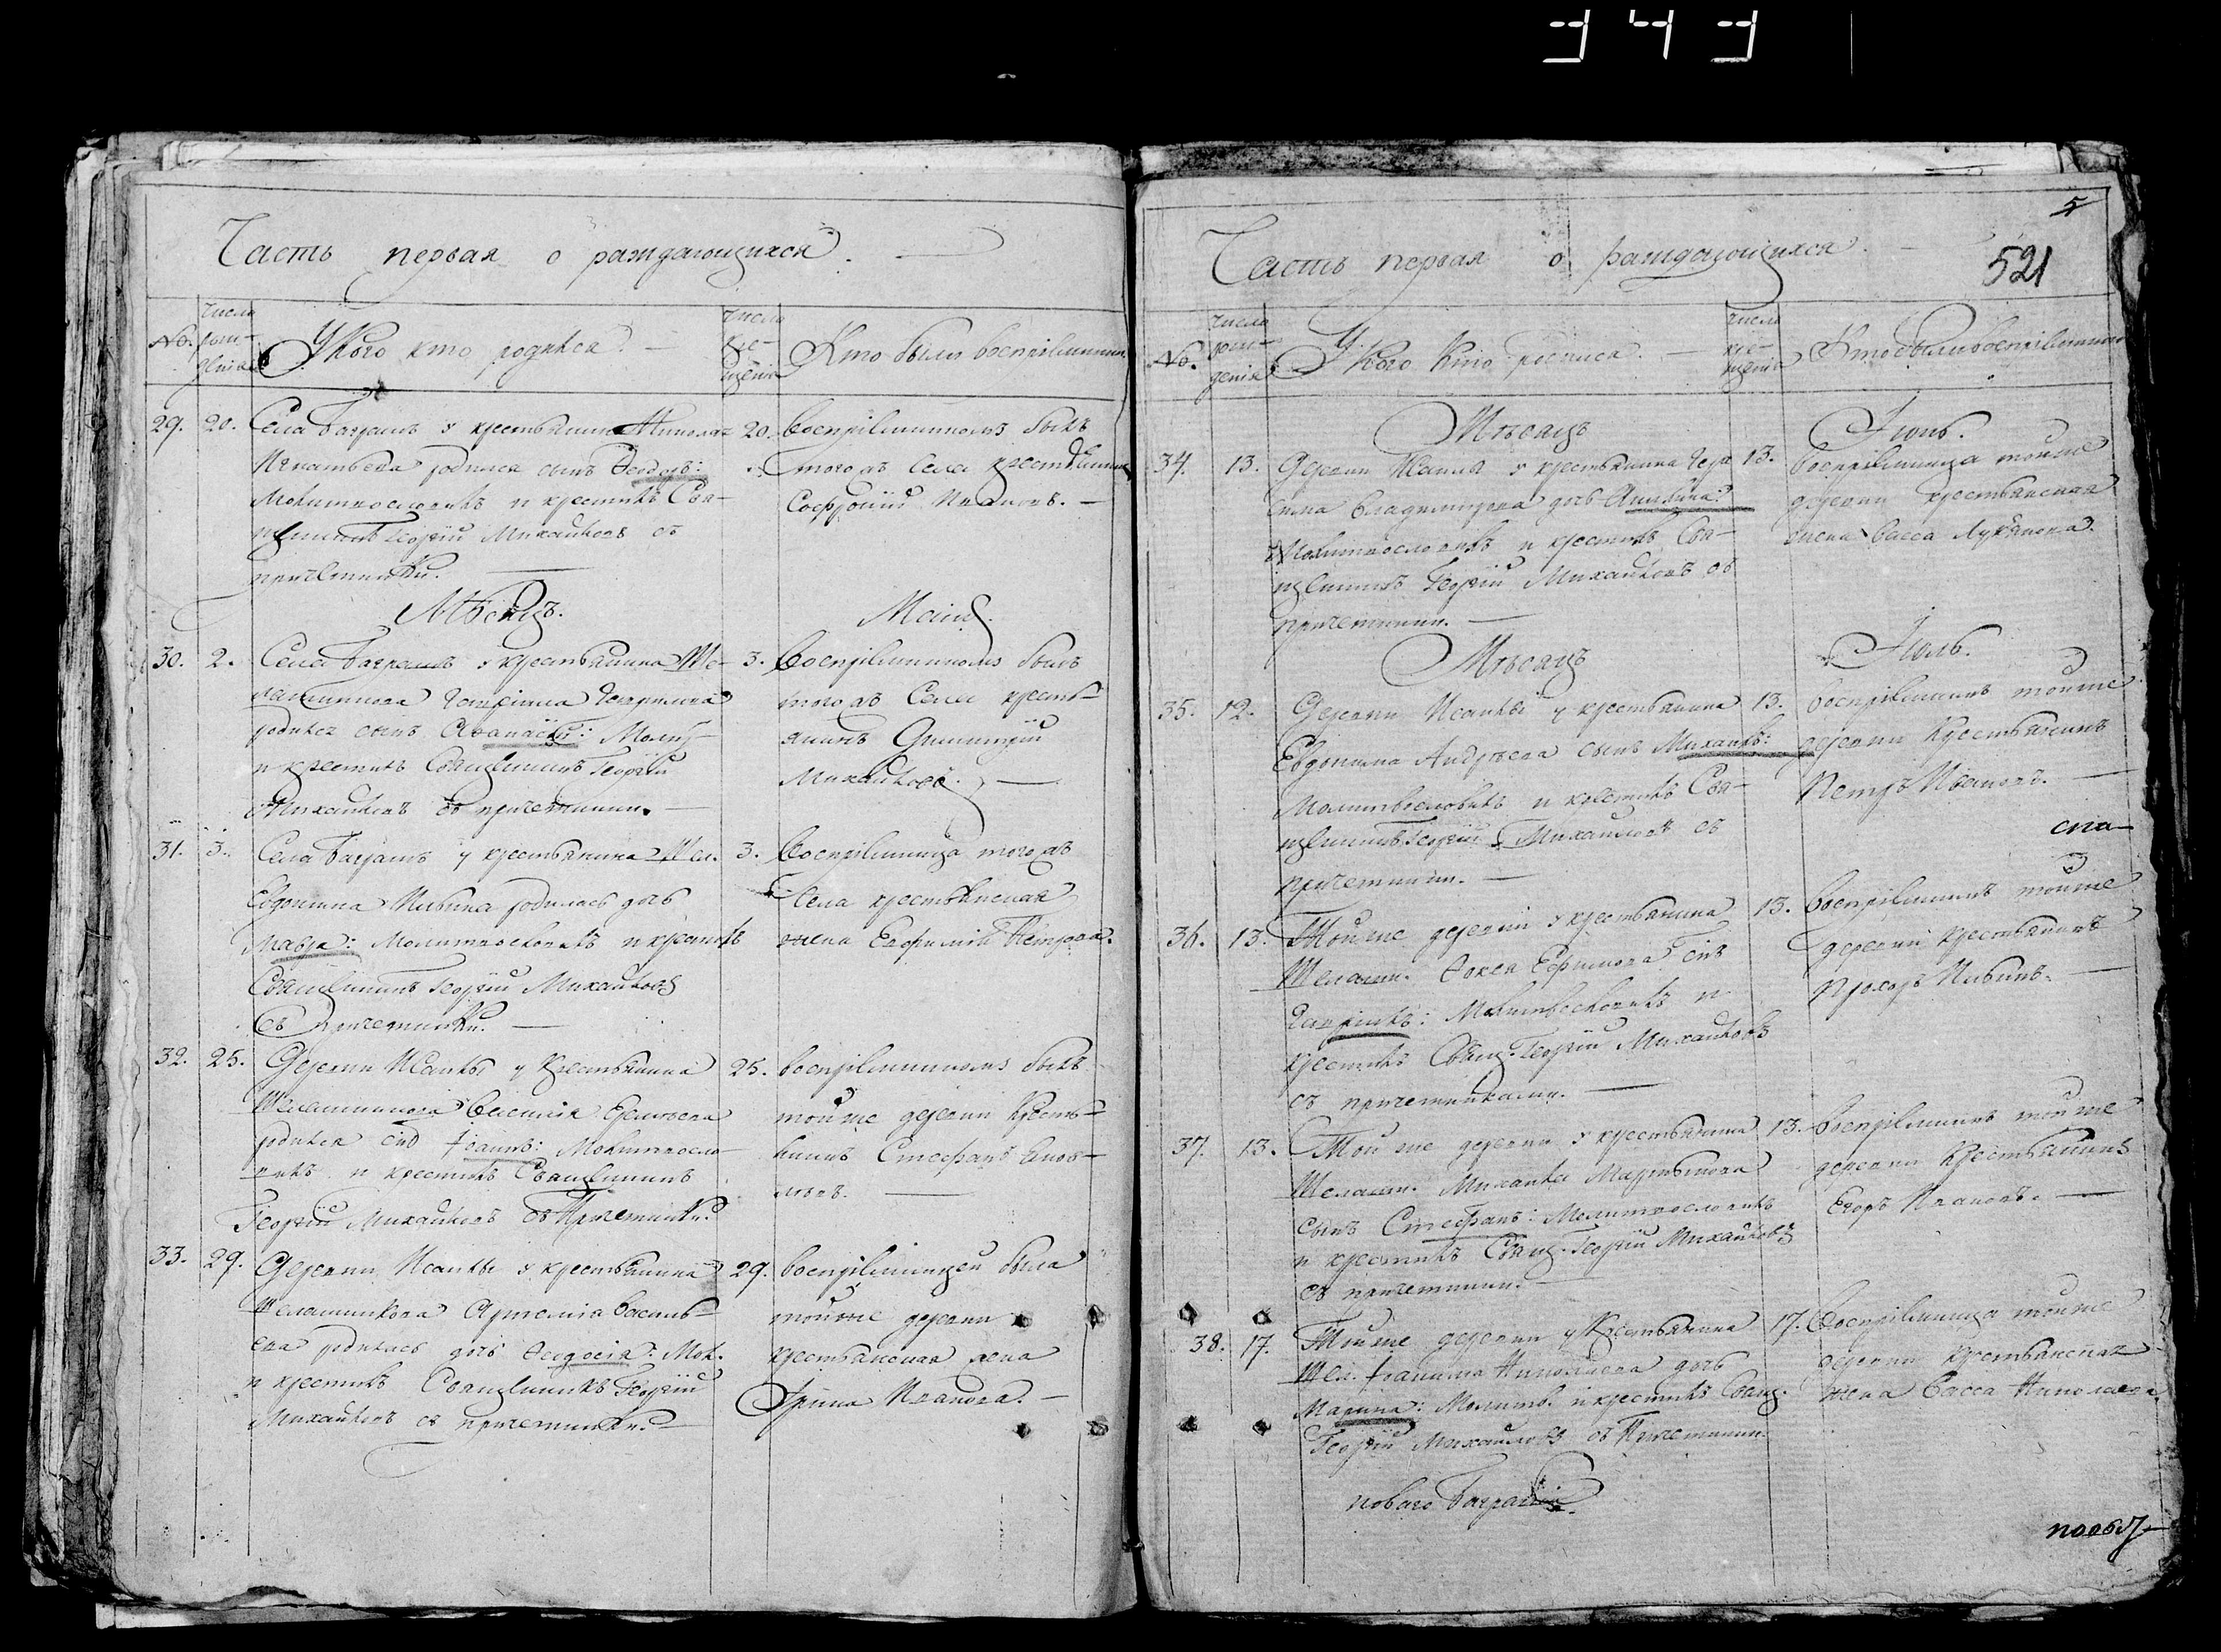 343
Часть первая о раждающихся.
No.
числа рож-денія
У Кого кто родился.
числа кре-щенія
Кто былъ воспріемникъ
29. 20. Села Баграшъ у крестьянина Николая
Игнатьева родился сынъ Феодоръ:
Молитвословилъ и крестилъ Свя-
щенникъ Георгій Михайловъ съ
причетники.
20. воспріемникомъ былъ
тогожъ Села крестьянинъ
Софроній Ивановъ.
Мѣсяцъ.
Маій.
30. 2. Села Баграшъ у крестьянина Ше-
лашникова
родился сынъ Аѳанасій: Молит
и крестилъ Священникъ Георгій
Михайловъ съ причетники.
3. Воспріемникомъ былъ
тогожъ Села кресть-
янинъ Димитрій
Михайловъ.
31. 3. Села Баграшъ у крестьянина Шел.
Евдокима родилась дочь
Мавра: Молитвословилъ и крестилъ
Священникъ Георгій Михайловъ
съ причетники.
3. Воспріемница тогожъ
Села крестьянская
жена Евфимія Петрова.
32. 25. Деревни Исаклы у крестьянина
Шелашникова Василія
родился сынъ Іоаннъ: Молитвосло-
вилъ и крестилъ Священникъ
Георгій Михайловъ съ Причетники.
25. воспріемникомъ былъ
тойже деревни Кресть-
янинъ Стефанъ Яков-
левъ.
33. 29. Деревни Исаклы у крестьянина
Шелашникова Артемія Василь-
ева родилась дочь Феодосія: Мол.
и крестилъ Священникъ Георгій
Михайловъ съ причетники.
29. воспріемницей была
тойже деревни
крестьянская жена
Ирина Иванова.
5
521
Часть первая о раждающихся.
No.
числа рож-денія
У Кого Кто родился.
числа кре-щенія
Кто былъ воспріемникъ
Мѣсяцъ
Іюнь.
34. 13. Деревни Исаклы у крестьянина Гера
сима Владимирова дочь
Молитвословилъ и крестилъ Свя-
щенникъ Георгій Михайловъ съ
причетники.
13. воспріемница тойже
деревни крестьянская
жена Васса Лукьянова.
Мѣсяцъ
Іюль.
35. 12. Деревни Исаклы у крестьянина
Евдокима Андреева сынъ Михаилъ:
Молитвословилъ и крестилъ Свя-
щенникъ Георгій Михайловъ съ
причетники.
13. воспріемникъ тойже
деревни Крестьянинъ
Петръ Ивановъ.
спа-
36. 13. Тойже деревни у крестьянина
Шелашн. Фокея Ефимова сынъ
Гавріилъ: Молитвословилъ и
крестилъ Свящ. Георгій Михайловъ
съ причетниками.
13. воспріемникъ тойже
деревни крестьянинъ
Прохоръ
37. 13. Тойже деревни у крестьянина
Шелашн. Михаила Мартынова
сынъ Стефанъ: Молитвословилъ
и крестилъ Свящ. Георгій Михайловъ
съ причетники.
13. воспріемникъ тойже
деревни Крестьянинъ
Егоръ Ивановъ.
38. 17. Тойже деревни у Крестьянина
Шел. Іоанна Николаева дочь
Марина: Молитв. и крестилъ Свящ.
Георгій Михайловъ съ Причетники.
17. воспріемница тойже
деревни крестьянская
жена Васса Николаева
новаго